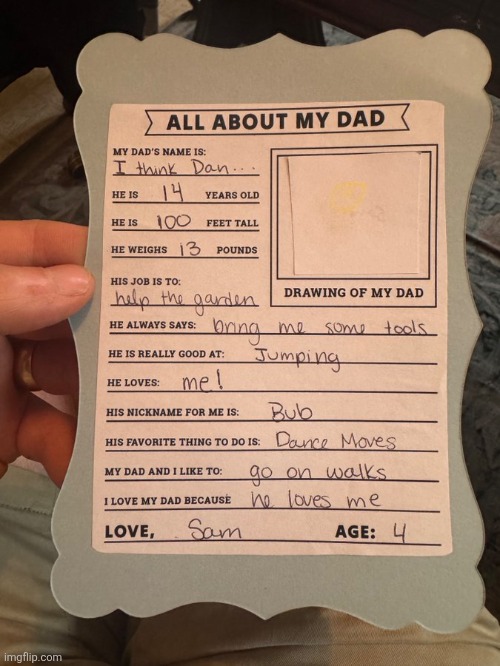 ALL ABOUT MY DAD
MY DAD'S NAME IS:
I think Dan...
HE IS 14 YEARS OLD
HE IS 100 FEET TALL
HE WEIGHS 13 POUNDS
HIS JOB IS TO:
help the garden
DRAWING OF MY DAD
HE ALWAYS SAYS: bring me some tools
HE IS REALLY GOOD AT: Jumping
HE LOVES: me!
HIS NICKNAME FOR ME IS: Bub
HIS FAVORITE THING TO DO IS: Dance Moves
MY DAD AND I LIKE TO: go on walks
I LOVE MY DAD BECAUSE he loves me
LOVE, Sam AGE: 4
imgflip.com